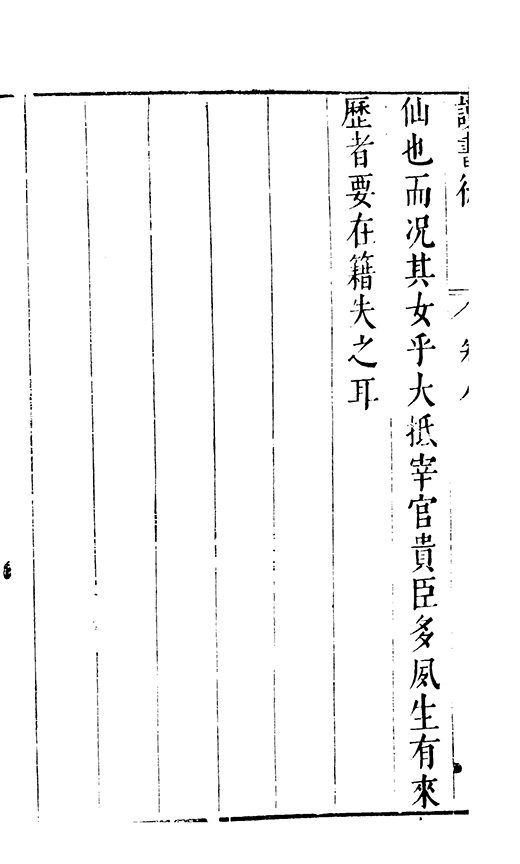 讀書後 卷八
仙也而况其女乎大抵宰官貴臣多夙生有來
歷者要在籍失之耳